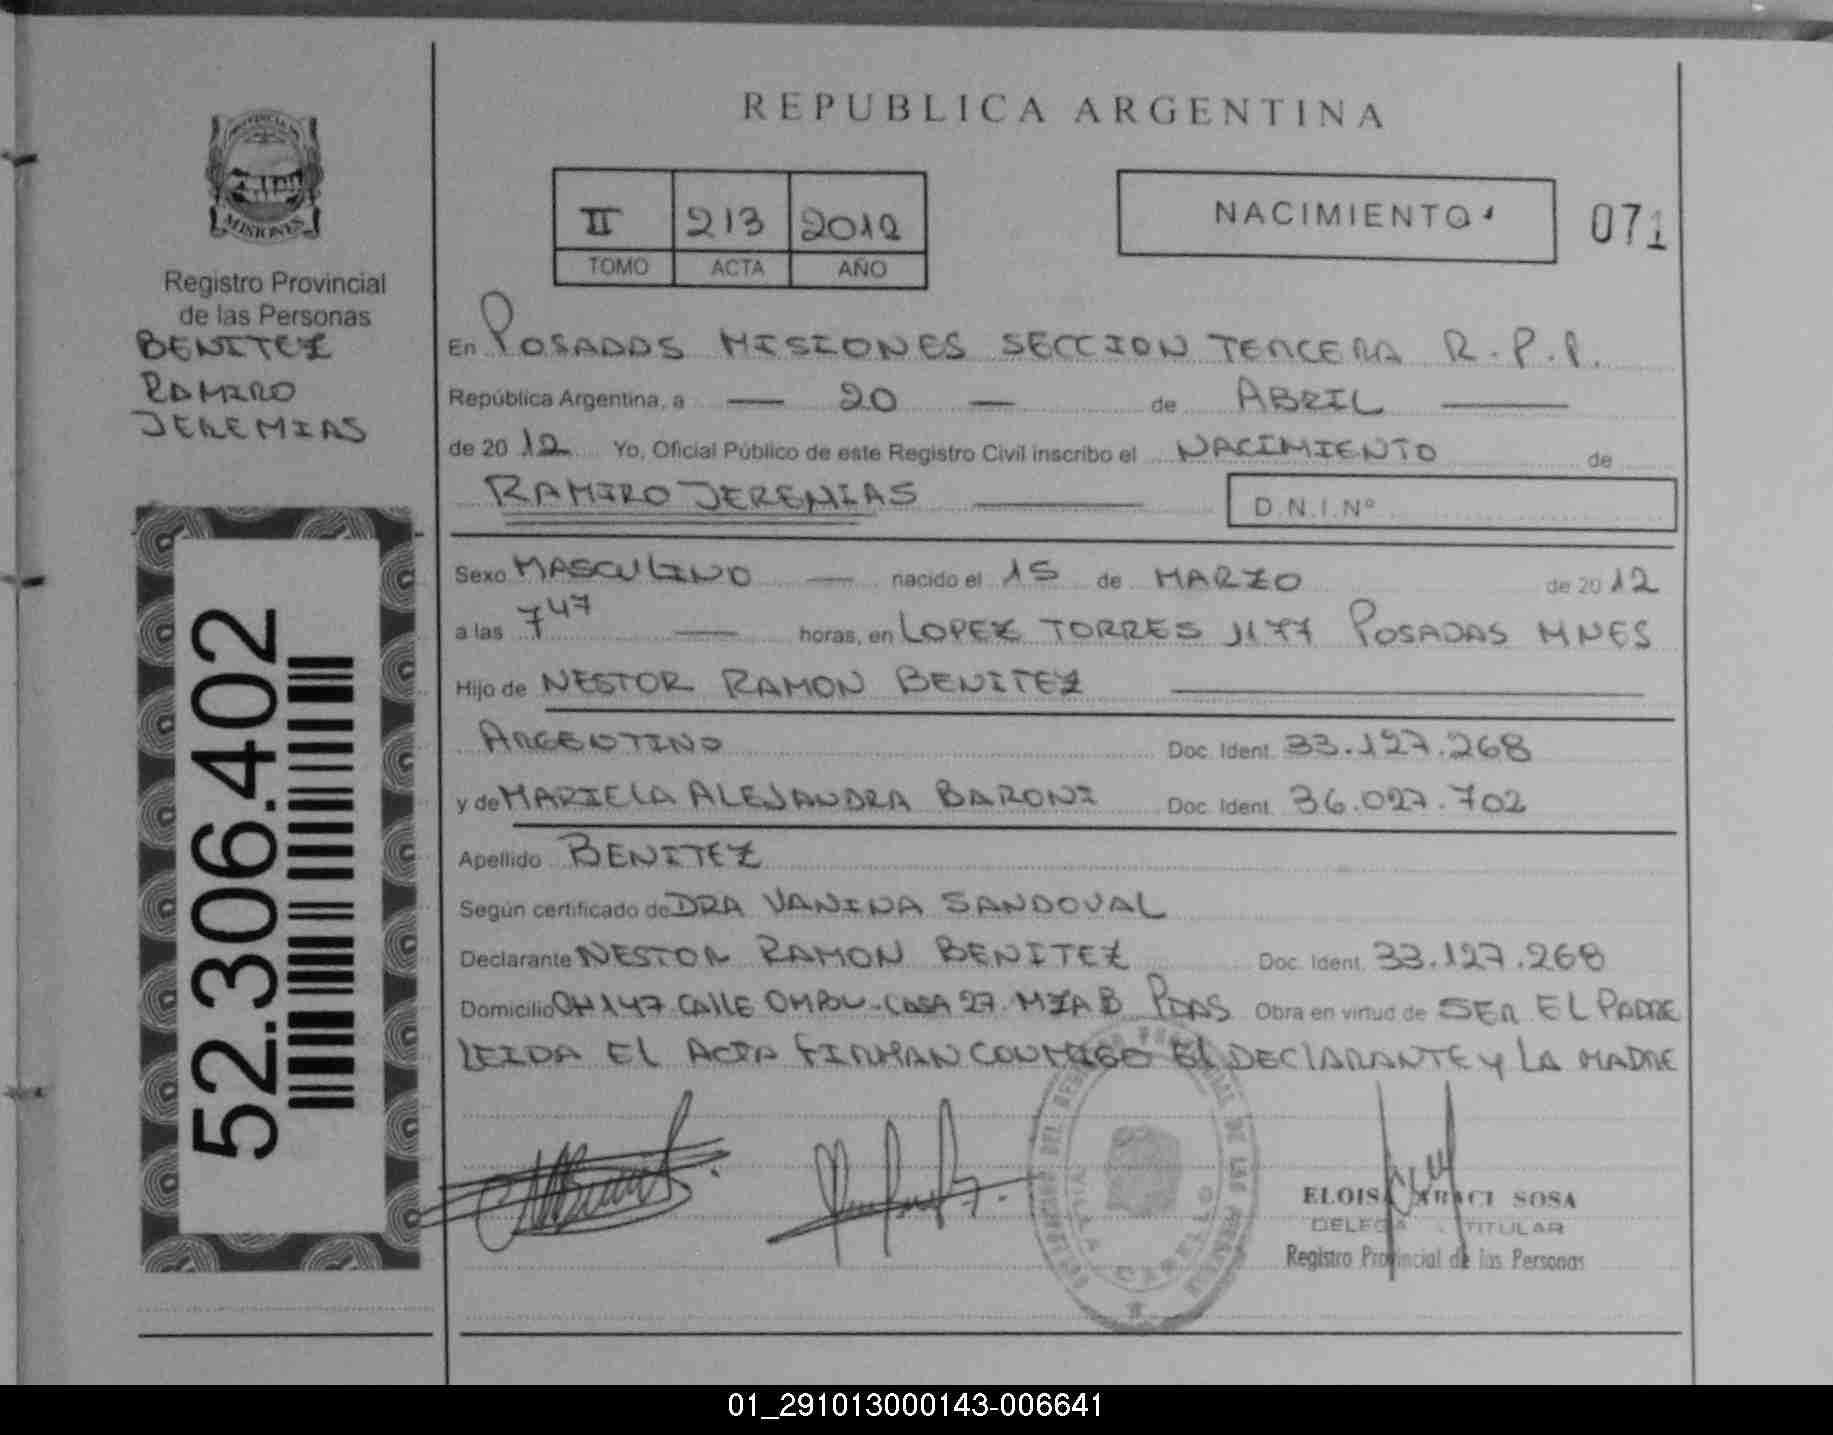 REPUBLICA ARGENTINA
PROVINCIA DE
MISIONES
Registro Provincial
de las Personas
BENITEZ
RAMIRO
JEREMIAS
52.306.402
II 213 2012
TOMO ACTA AÑO
NACIMIENTO
071
En POSADAS MISIONES SECCION TERCERA R.P.P.
República Argentina, a — 20 — de ABRIL —
de 2012 Yo, Oficial Público de este Registro Civil inscribo el NACIMIENTO de
RAMIRO JEREMIAS — D.N.I.Nº
Sexo MASCULINO — nacido el 15 de MARZO de 2012
a las 7 47 — horas, en LOPEZ TORRES 1177 POSADAS MNES
Hijo de NESTOR RAMON BENITEZ —
ARGENTINO Doc. Ident. 33.127.268
y de MARIELA ALEJANDRA BARONI Doc. Ident. 36.027.702
Apellido BENITEZ
Según certificado de DRA VANINA SANDOVAL
Declarante NESTOR RAMON BENITEZ Doc. Ident. 33.127.268
Domicilio CH 147 CALLE OMBU - CASA 27 MZA B PDAS Obra en virtud de SER EL PADRE
LEIDA EL ACTA FIRMAN CONMIGO EL DECLARANTE Y LA MADRE
ELOISA ARACI SOSA
TITULAR
Registro Provincial de las Personas
01_291013000143-006641